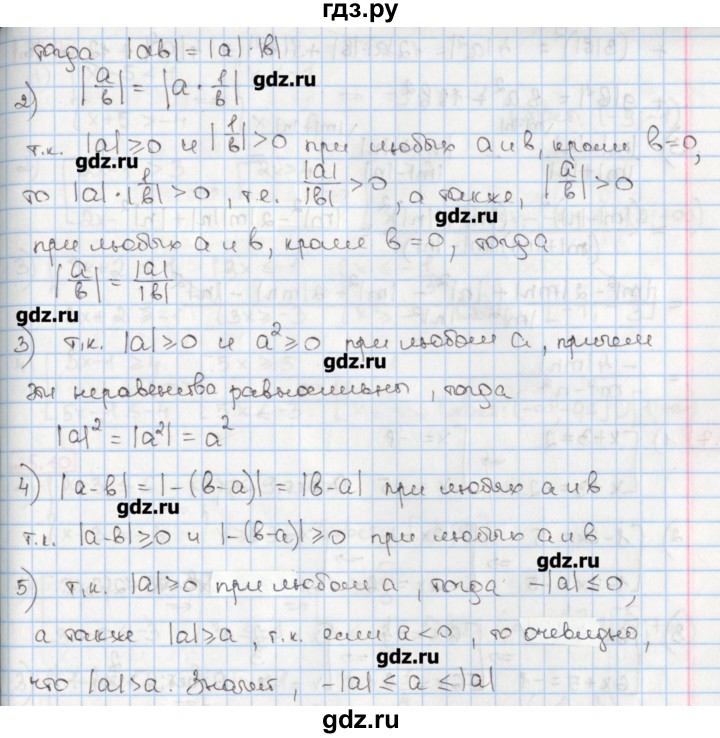 гдз.ру
тогда |ab| = |a|·|b|
2) |a/b| = |a · 1/b|
gdz.ru
т.к. |a| ≥ 0 и |1/b| > 0 при любых a и b, кроме b=0,
gdz.ru
то |a|·|1/b| > 0, т.е. |a|/|b| > 0, а также, |a/b| > 0
gdz.ru
при любых a и b, кроме b=0, тогда
|a/b| = |a|/|b|
gdz.ru
3) т.к. |a| ≥ 0 и a² ≥ 0 при любом a, причем
gdz.ru
эти неравенства равносильны, тогда
|a|² = |a²| = a²
4) |a-b| = |-(b-a)| = |b-a| при любых a и b
gdz.ru
т.к. |a-b| ≥ 0 и |-(b-a)| ≥ 0 при любых a и b
gdz.ru
5) т.к. |a| ≥ 0 при любом a, тогда -|a| ≤ 0,
а также |a| ≥ a, т.к. если a < 0, то очевидно,
gdz.ru
что |a| > a. Значит, -|a| ≤ a ≤ |a|
gdz.ru